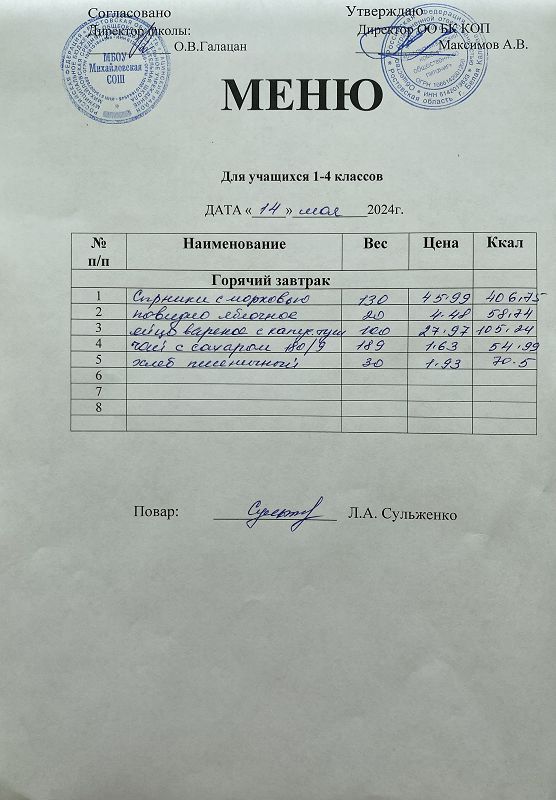 Согласовано Утверждаю
Директор школы: Директор ОО БК КОП
О.В.Галацан Максимов А.В.
МБОУ
Михайловская
СОШ
МЕНЮ
Для учащихся 1-4 классов
ДАТА «14» мая 2024г.
№ п/п Наименование Вес Цена Ккал
Горячий завтрак
1 Сырники с морковью 130 45.99 406,75
2 повидло яблочное 20 4.48 58.74
3 яйцо вареное с капустой 100 27.97 105.24
4 чай с сахаром 180/9 189 1.63 54.99
5 хлеб пшеничный 30 1.93 70.5
6
7
8
Повар: Л.А. Сульженко